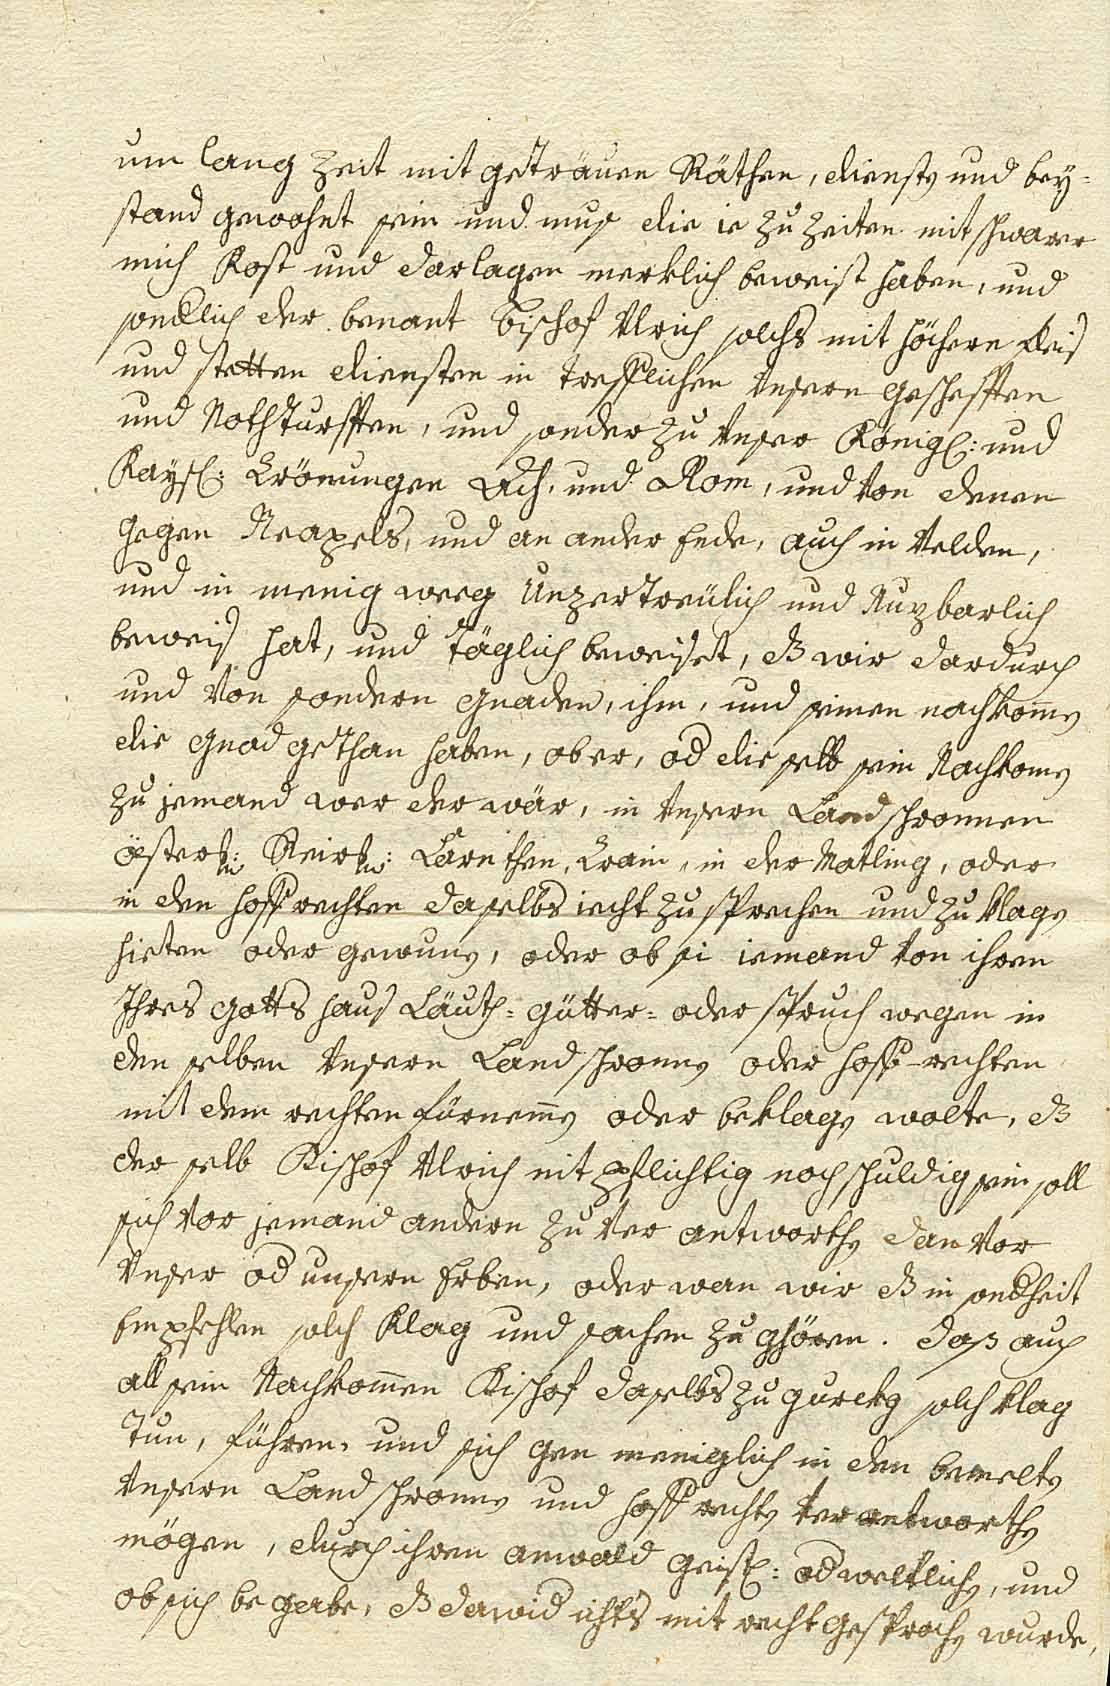 um lang Zeit mit geträuen Räthen, dienstn und bey=
stand gewohnt sein und uns die ie zu Zeiten mit schwarer
mich Kost und darlagen merklich beweist haben, und
sondlich der benant Bischof Ulrich solchs mit höchern fleis
und stetten diensten in trefflichen Unsern geschefften
und Nothturfften, und sonder zu Unser Königl: und
Kaysl: Crönungen Ach, und Rom, und von denen
gegen Neapels, und an ander Ende, auch in Velden,
und in menig weeg Unzertreülich und Nuzbarlich
beweis hat, und täglich beweiset, dß wir dardurch
und von sondern gnaden, ihm, und seinen nachkom̄n
die gnad gethan haben, ob er, od die selb sein Nachkomn
zu jemand wer der wär, in Unsern Landschrannen
össterh: Steirh: Cärnthen, Crain, in der Matling, oder
in den hoffrechten daselbs icht zu sprechen und zu klagn
hieten oder gewunn, oder ob si iemand von ihren
Ihres gotts haus Läuth= gütter= oder spruch wegen in
den selben Unsern Landschrann oder hoff-rechten
mit dem rechten fürnem̄n oder beklagn wolte, dß
der selb Bischof Ulrich nit pflichtig noch schuldig sein soll
sich vor jemand andern zu ver antworthn dan vor
Unser od unsern Erben, oder wan wir dß in sondheit
Empfehlen solch Klag und sachen zu ghören. daß auch
all sein Nachkom̄en Bischof daselbs zu gurckg solch klag
tun, führen, und sich gen meniglich in den bemeltn
Unsern Landschrann und hoffrechtn verantworthn
mögen, durch ihren anwald geistl: od weltlichn, und
ob sich begebe, dß dawid ichts mit recht gesprochn wurde,